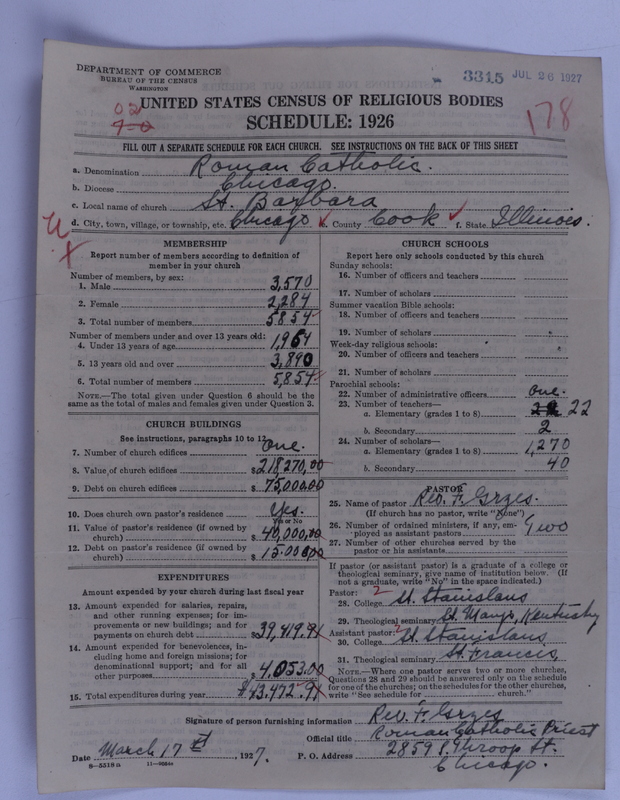 DEPARTMENT OF COMMERCE
BUREAU OF THE CENSUS
WASHINGTON
3315 JUL 26 1927
02
7-0
178
UNITED STATES CENSUS OF RELIGIOUS BODIES
SCHEDULE: 1926
FILL OUT A SEPARATE SCHEDULE FOR EACH CHURCH. SEE INSTRUCTIONS ON THE BACK OF THIS SHEET
a. Denomination Roman Catholic.
b. Diocese Chicago.
c. Local name of church St. Barbara
d. City, town, village, or township, etc. Chicago County Cook f. State Illinois.
MEMBERSHIP
Report number of members according to definition of
member in your church
Number of members, by sex:
1. Male 3,570
2. Female 2,284
3. Total number of members 5854
Number of members under and over 13 years old:
4. Under 13 years of age 1,964
5. 13 years old and over 3,890
6. Total number of members 5,854
NOTE.—The total given under Question 6 should be the
same as the total of males and females given under Question 3.
CHURCH BUILDINGS
See instructions, paragraphs 10 to 12
7. Number of church edifices One.
8. Value of church edifices $218,270,00
9. Debt on church edifices $75,000.00
10. Does church own pastor's residence? Yes.
Yes or No
11. Value of pastor's residence (if owned by
church) $40,000,00
12. Debt on pastor's residence (if owned by
church) $15.000,00
EXPENDITURES
Amount expended by your church during last fiscal year
13. Amount expended for salaries, repairs,
and other running expenses; for im-
provements or new buildings; and for
payments on church debt $39,419.91
14. Amount expended for benevolences, in-
cluding home and foreign missions; for
denominational support; and for all
other purposes $4,053.00
15. Total expenditures during year $43,472.91
CHURCH SCHOOLS
Report here only schools conducted by this church
Sunday schools:
16. Number of officers and teachers
17. Number of scholars
Summer vacation Bible schools:
18. Number of officers and teachers
19. Number of scholars
Week-day religious schools:
20. Number of officers and teachers
21. Number of scholars
Parochial schools:
22. Number of administrative officers One.
23. Number of teachers—
a. Elementary (grades 1 to 8) 22
b. Secondary 2
24. Number of scholars—
a. Elementary (grades 1 to 8) 1,270
b. Secondary 40
PASTOR
25. Name of pastor Rev. F. Grzes.
(If church has no pastor, write "None")
26. Number of ordained ministers, if any, em-
ployed as assistant pastors Two
27. Number of other churches served by the
pastor or his assistants
If pastor (or assistant pastor) is a graduate of a college or
theological seminary, give name of institution below. (If
not a graduate, write "No" in the space indicated.)
Pastor: 2
28. College St. Stanislaus
29. Theological seminary St. Marys, Kentucky
Assistant pastor: 2
30. College St. Stanislaus
31. Theological seminary St. Francis,
NOTE.—Where one pastor serves two or more churches,
Questions 28 and 29 should be answered only on the schedule
for one of the churches; on the schedules for the other churches,
write "See schedule for church."
Signature of person furnishing information Rev. F. Grzes
Official title Roman Catholic Priest
Date March 17th, 1927. P. O. Address 2859 S. Throop St.
Chicago.
8—5518a 11—9084a